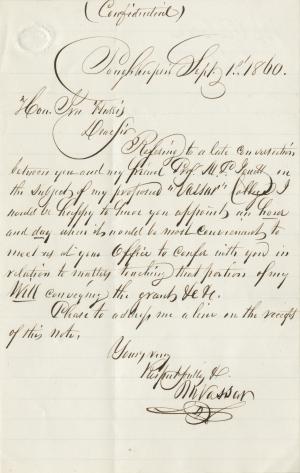 (Confidential)
Poughkeepsie Sept 1st 1860.
Hon.
Dear Sir
Refering to a late conversation
between you and my friend Prof M. P. Jewett on
the subject of my proposed "Vassar" College I
would be happy to have you appoint an hour
and day when it would be most convenient to
meet us at your Office to confer with you in
relation to matters touching that portion of my
Will conveying the grant &c &c.
Please to address me a line on the receipt
of this note.
Yours very
Respectfully &
M Vassar